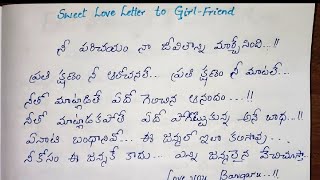 Sweet Love Letter to Girl-Friend
నీ పరిచయం నా జీవితాన్ని మార్చేసింది...!!
ప్రతి క్షణం నీ ఆలోచనలే... ప్రతి క్షణం నీ మాటలే...
నీతో మాట్లాడితే ఏదో గెలిచిన ఆనందం...!!
నీతో మాట్లాడకపోతే ఏదో పోగొట్టుకున్న అనే బాధ...!!
ఏనాటి బంధానివో... ఈ జన్మలో ఇలా కలిసావు...
నీ కోసం ఈ జన్మకే కాదు... ఎన్ని జన్మలైన వేచిచూస్తా..
Love you Bangaru...!!